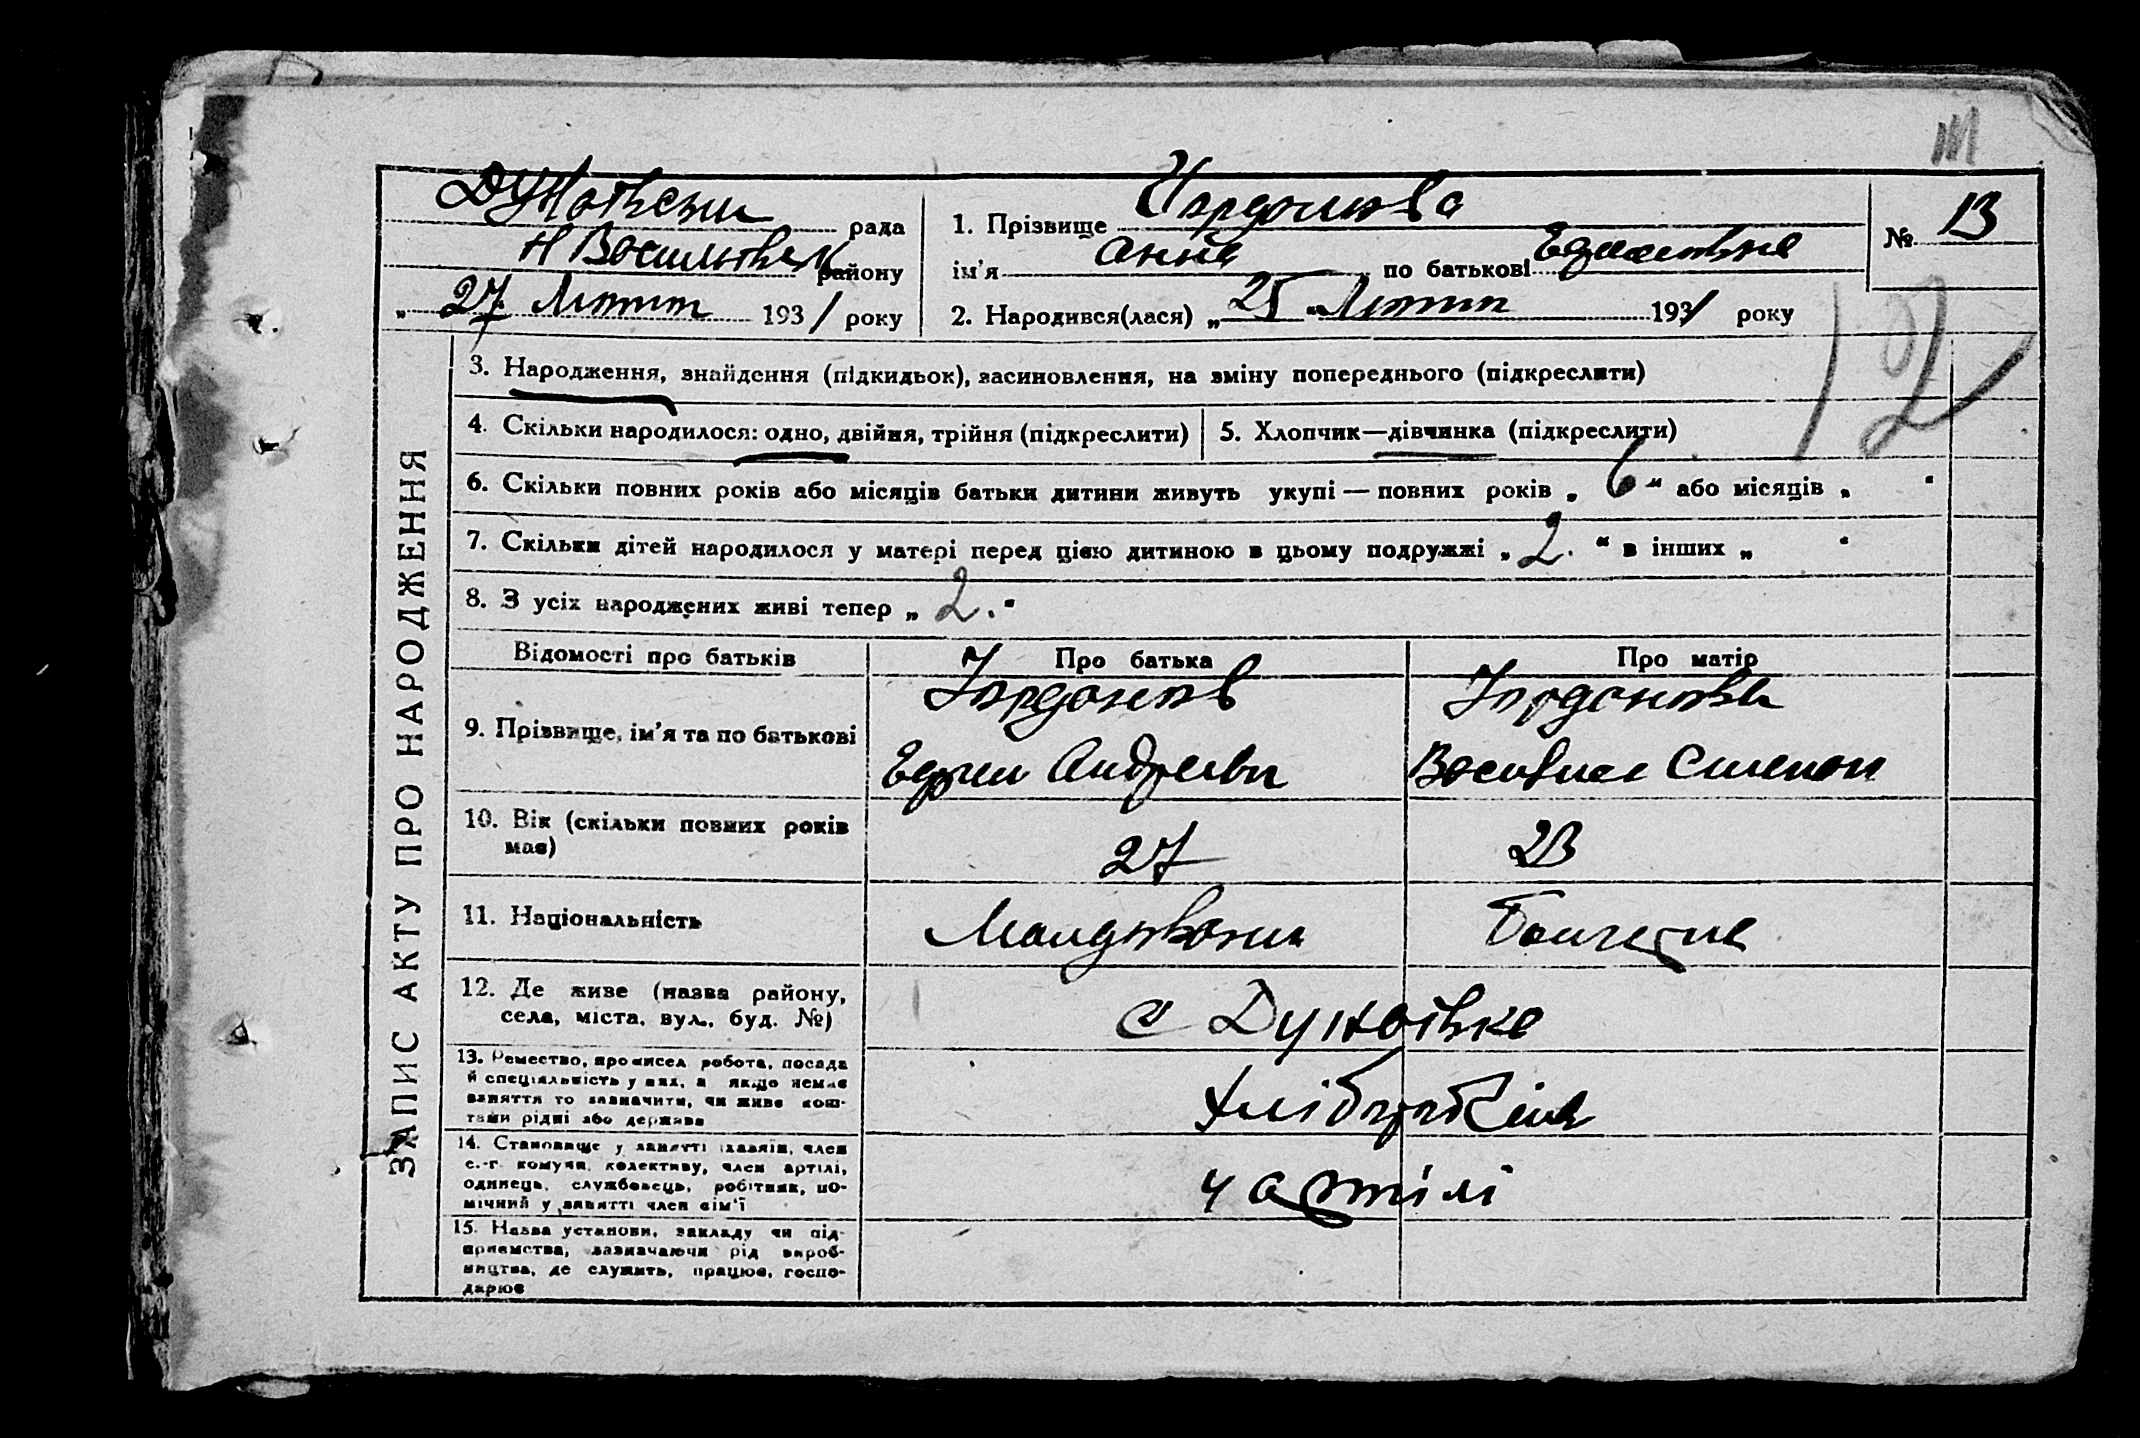 III
Дунаївська рада
Н Васильївськ району
„27 Лютого 1931 року
1. Прізвище
ім'я Анна по батькові
2. Народився(лася) „25 " Лютого 1931 року
№ 13
12
ЗАПИС АКТУ ПРО НАРОДЖЕННЯ
3. Народження, знайдення (підкидьок), засиновлення, на зміну попереднього (підкреслити)
4. Скільки народилося: одно, двійня, трійня (підкреслити)
5. Хлопчик—дівчинка (підкреслити)
6. Скільки повних років або місяців батьки дитини живуть укупі — повних років „ 6 “ або місяців „ “
7. Скільки дітей народилося у матері перед цією дитиною в цьому подружжі „ 2. “ в інших „ “
8. З усіх народжених живі тепер „ 2. “
Відомості про батьків
Про батька
Про матір
9. Прізвище, ім'я та по батькові
10. Вік (скільки повних років має)
27
23
11. Національність
12. Де живе (назва району,
села, міста, вул., буд. №)
с Дунаївка
13. Ремество, промисел робота, посада
й спеціяльність у них, а якщо немає
заняття то зазначити, чи живе кош-
тами рідні або держави
хліборобство
14. Становище у занятті хазяїн, член
с.-г. комуни, колективу, член артілі,
одинець, службовець, робітник, по-
мічний у занятті член сім'ї
ч артілі
15. Назва установи, закладу чи під-
приємства, зазначаючи рід вироб-
ництва, де служить, працює, госпо-
дарює